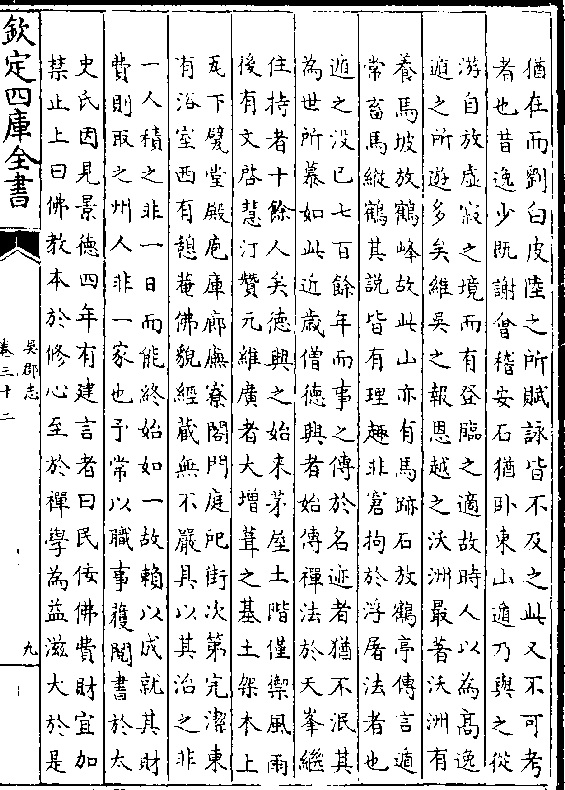 猶在而劉白皮陸之所賦詠皆不及之此又不可考
者也昔逸少既謝會稽安石猶卧東山遁乃與之從
游自放虚寂之境而有登臨之適故時人以為高逸
遁之所遊多矣維吳之報恩越之沃洲最著沃洲有
養馬坡放鶴峰故此山亦有馬跡石放鶴亭傳言遁
常畜馬縱鶴其説皆有理趣非窘拘於浮屠法者也
遁之没已七百餘年而事之傳於名迹者猶不泯其
為世所慕如此近歳僧德興者始傳禪法於天峯繼
住持者十餘人矣德興之始來茅屋土階僅禦風雨
後有文啓慧汀贊元維廣者大增葺之基土架木上
瓦下甓堂殿庖庫廊廡寮閣門庭戺街次第完潔東
有浴室西有憩菴佛貌經藏無不嚴具以其治之非
一人積之非一日而能終始如一故賴以成就其財
費則取之州人非一家也予常以職事獲閲書於太
史氏因見景德四年有建言者曰民佞佛費財宜加
禁止上曰佛教本於修心至於禪學為益滋大於是
欽定四庫全書
吳郡志
卷三十二
九